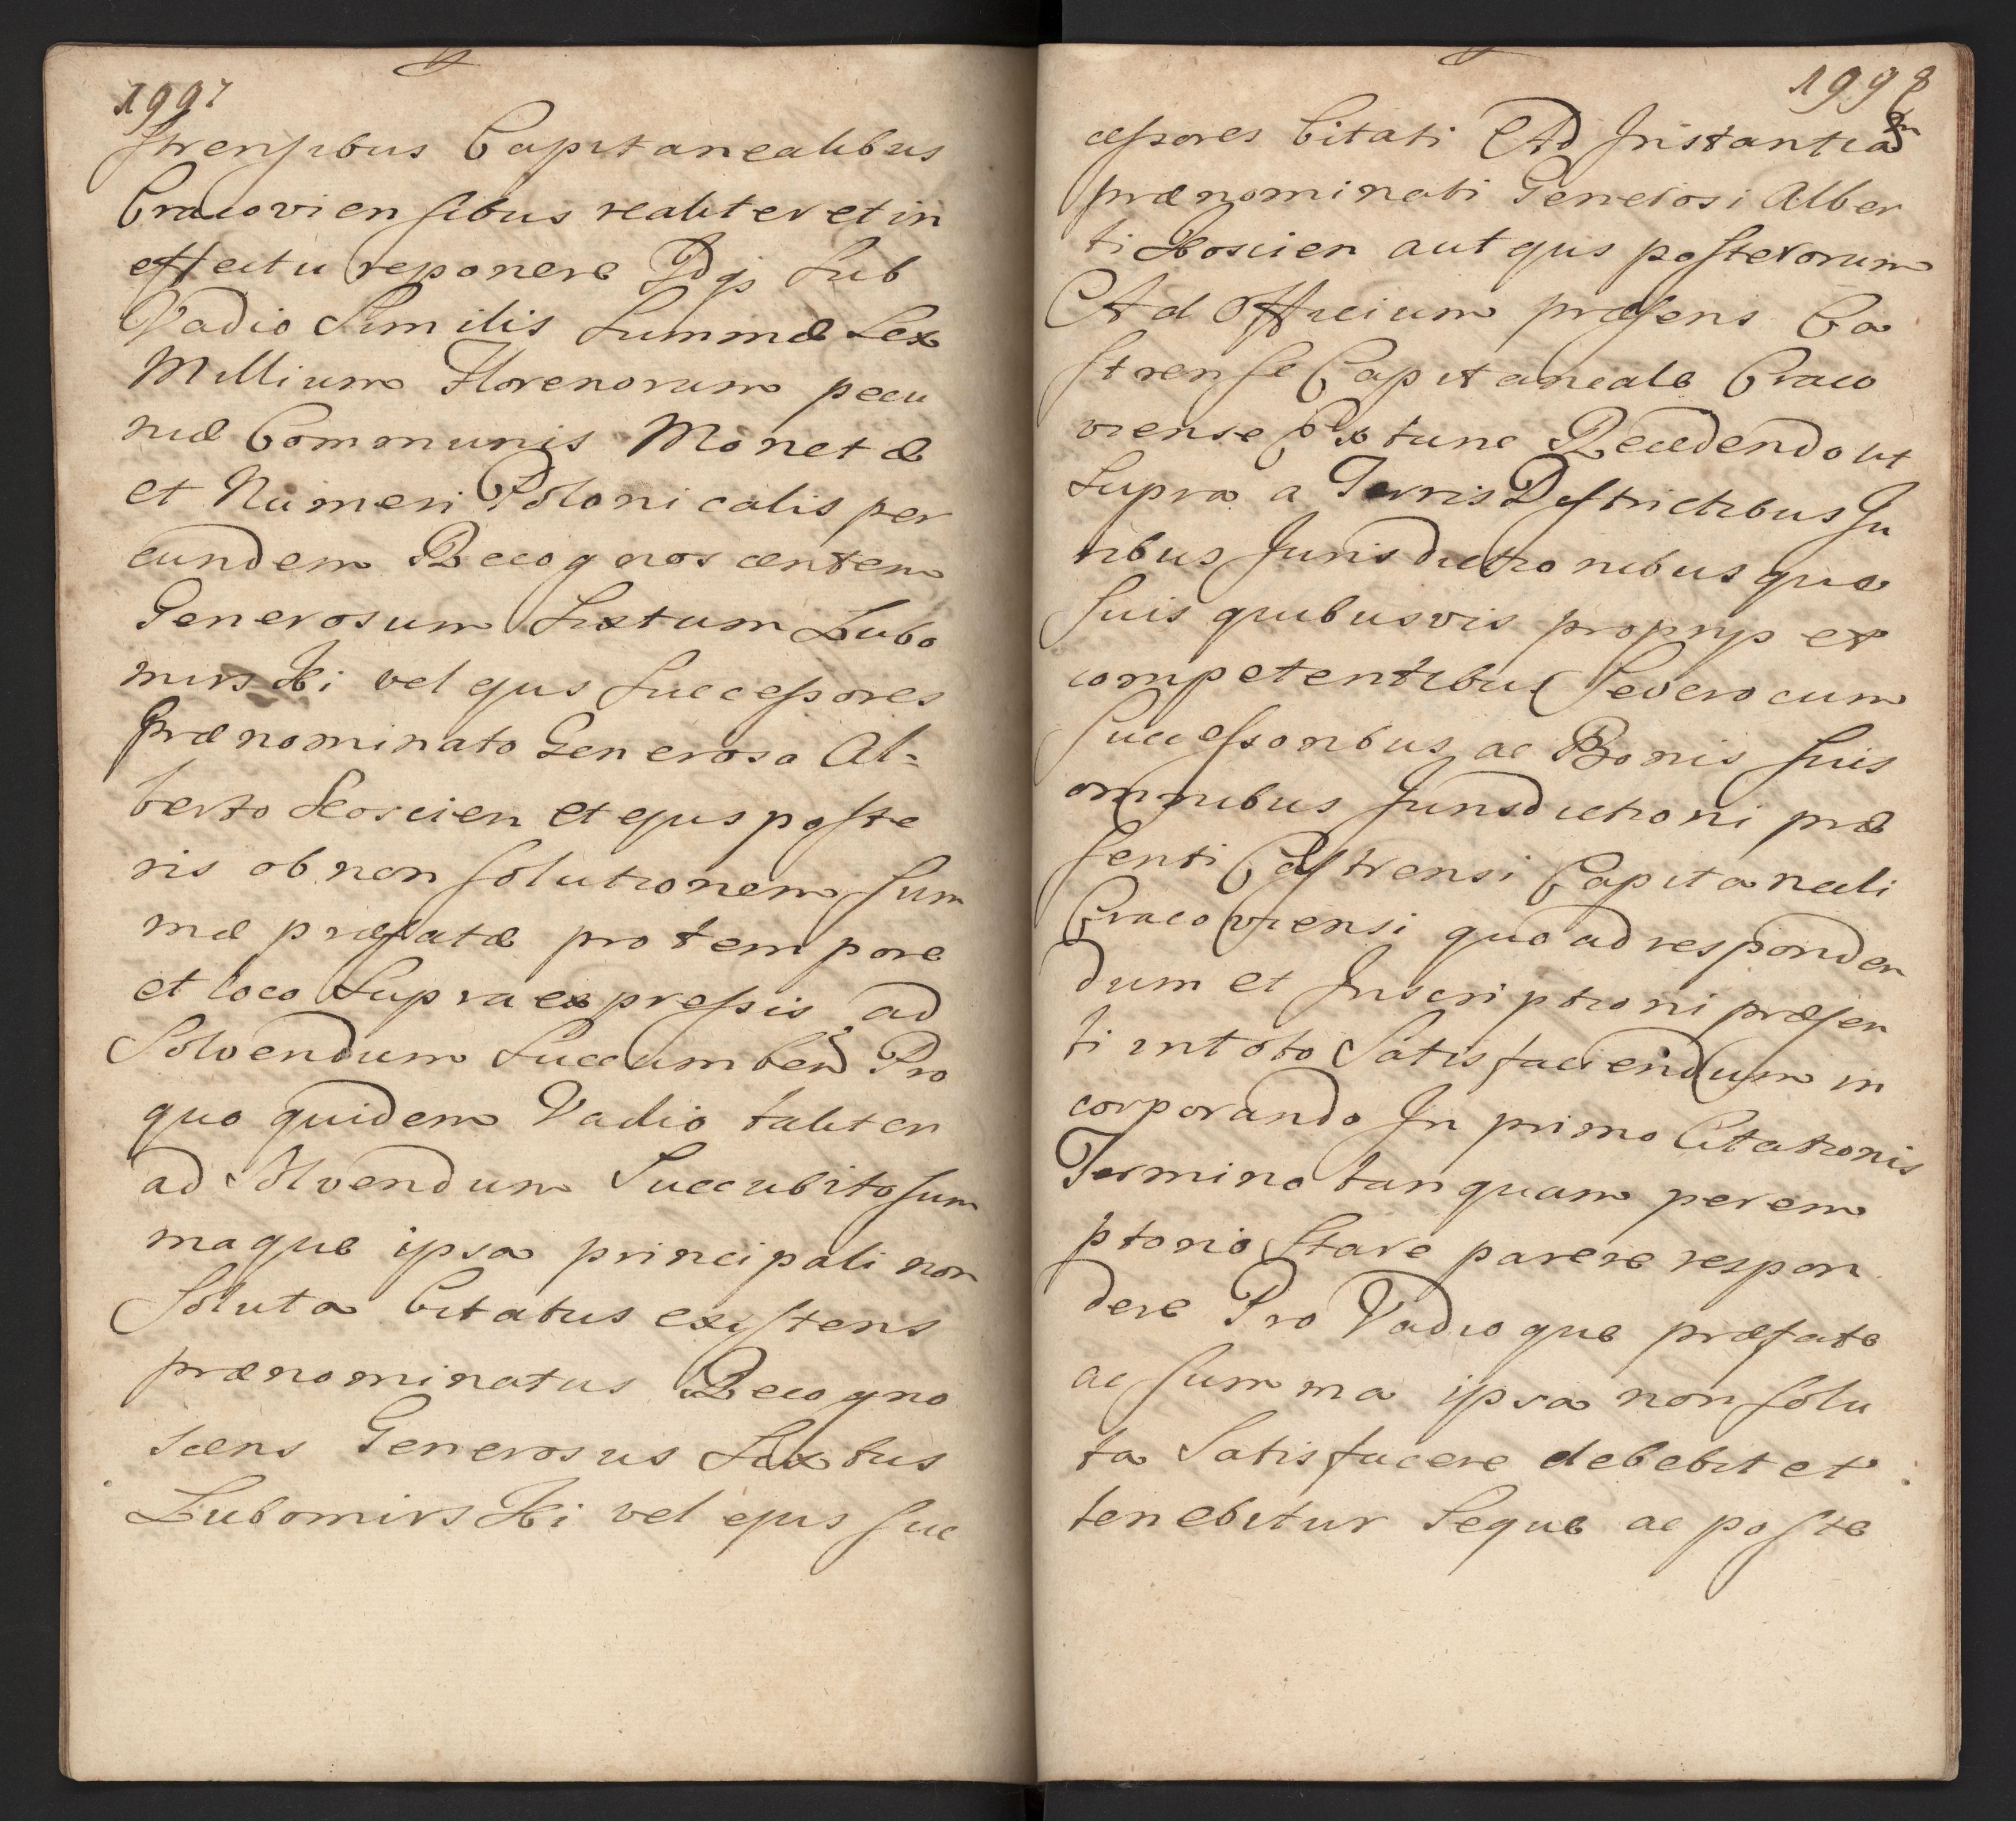 1997
strensibus Capitanealibus
Cracoviensibus realiter et in
effectu reponere Idq; Sub
Vadio Similis Summæ Sex
Millium Florenorum pecu
niæ Communis Monetæ
et Numeri Polonicalis per
eundem Recognoscentem
Generosum Sixtum Lubo
mirski vel ejus Successores
Prænominato Generoso Al=
berto Koscien et ejus poste
ris ob non solutionem sum
mæ præfatæ pro tempore
et loco Supra expressis ad
Solvendum Succumben Pro
quo quidem Vadio taliter
ad Solvendum Succubito sum
maque ipsa principali non
soluta Citatus existens
prænominatus Recogno
scens Generosus Sixtus
Lubomirski vel ejus suc
1998
cessores Citati Ad Instantiam
prænominati Generosi Alber
ti Koscien aut ejus posterorum
Ad Officium præsens Ca
strense Capitaneale Craco
viense Ex tunc Recedendo ut
Supra a Terris Districtibus Ju
ribus Jurisdictionibusque
suis quibusvis propriis et
competentibus Severo cum
Successoribus ac Bonis suis
omnibus Jurisdictioni præ
senti Castrensi Capitaneali
Cracoviensi quo ad responden
dum et Inscriptioni præsen
ti in toto Satisfaciendum in
corporando In primo Citationis
Termino tanquam perem
ptorio Stare parere respon
dere Pro Vadioque præfato
ac summa ipsa non solu
ta Satisfacere debebit et
tenebitur Seque ac poste